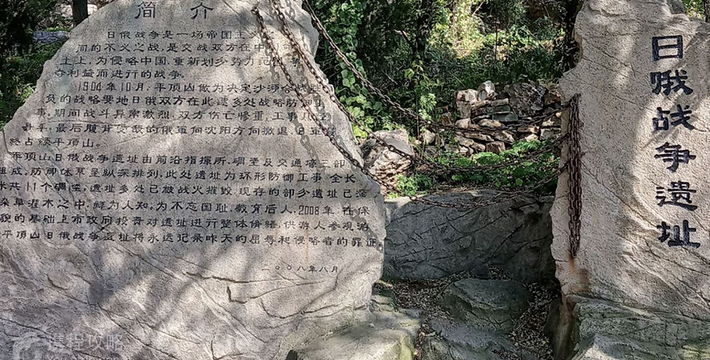 简介
日俄战争是一场帝国主义
间的不义之战,是交战双方在中
土上,为侵略中国,重新划分势力范围
夺利益而进行的战争。
1904年10月,平顶山做为决定沙涉
负的战略要地日俄双方在此
事,期间战斗异常激烈,双方伤亡惨重,工事几
易手,最后腹背受敌的俄军向沈阳方向撤退,日军
占领平顶山。
平顶山日俄战争遗址由前沿指挥所、碉堡及交通壕三部
组成,防御体系呈纵深排列,此处遗址为环形防御工事,全长
米共11个碉堡,遗址多处已被战火摧毁,现存的部分遗址已
杂草灌木之中,鲜为人知,为不忘国耻,教育后人,2008年,在保
貌的基础上市政府投资对遗址进行整体修缮,供游人参观
平顶山日俄战争遗址将永远记录昨天的屈辱和侵略者的罪证
二〇〇八年八月
日俄战争遗址
进程攻略